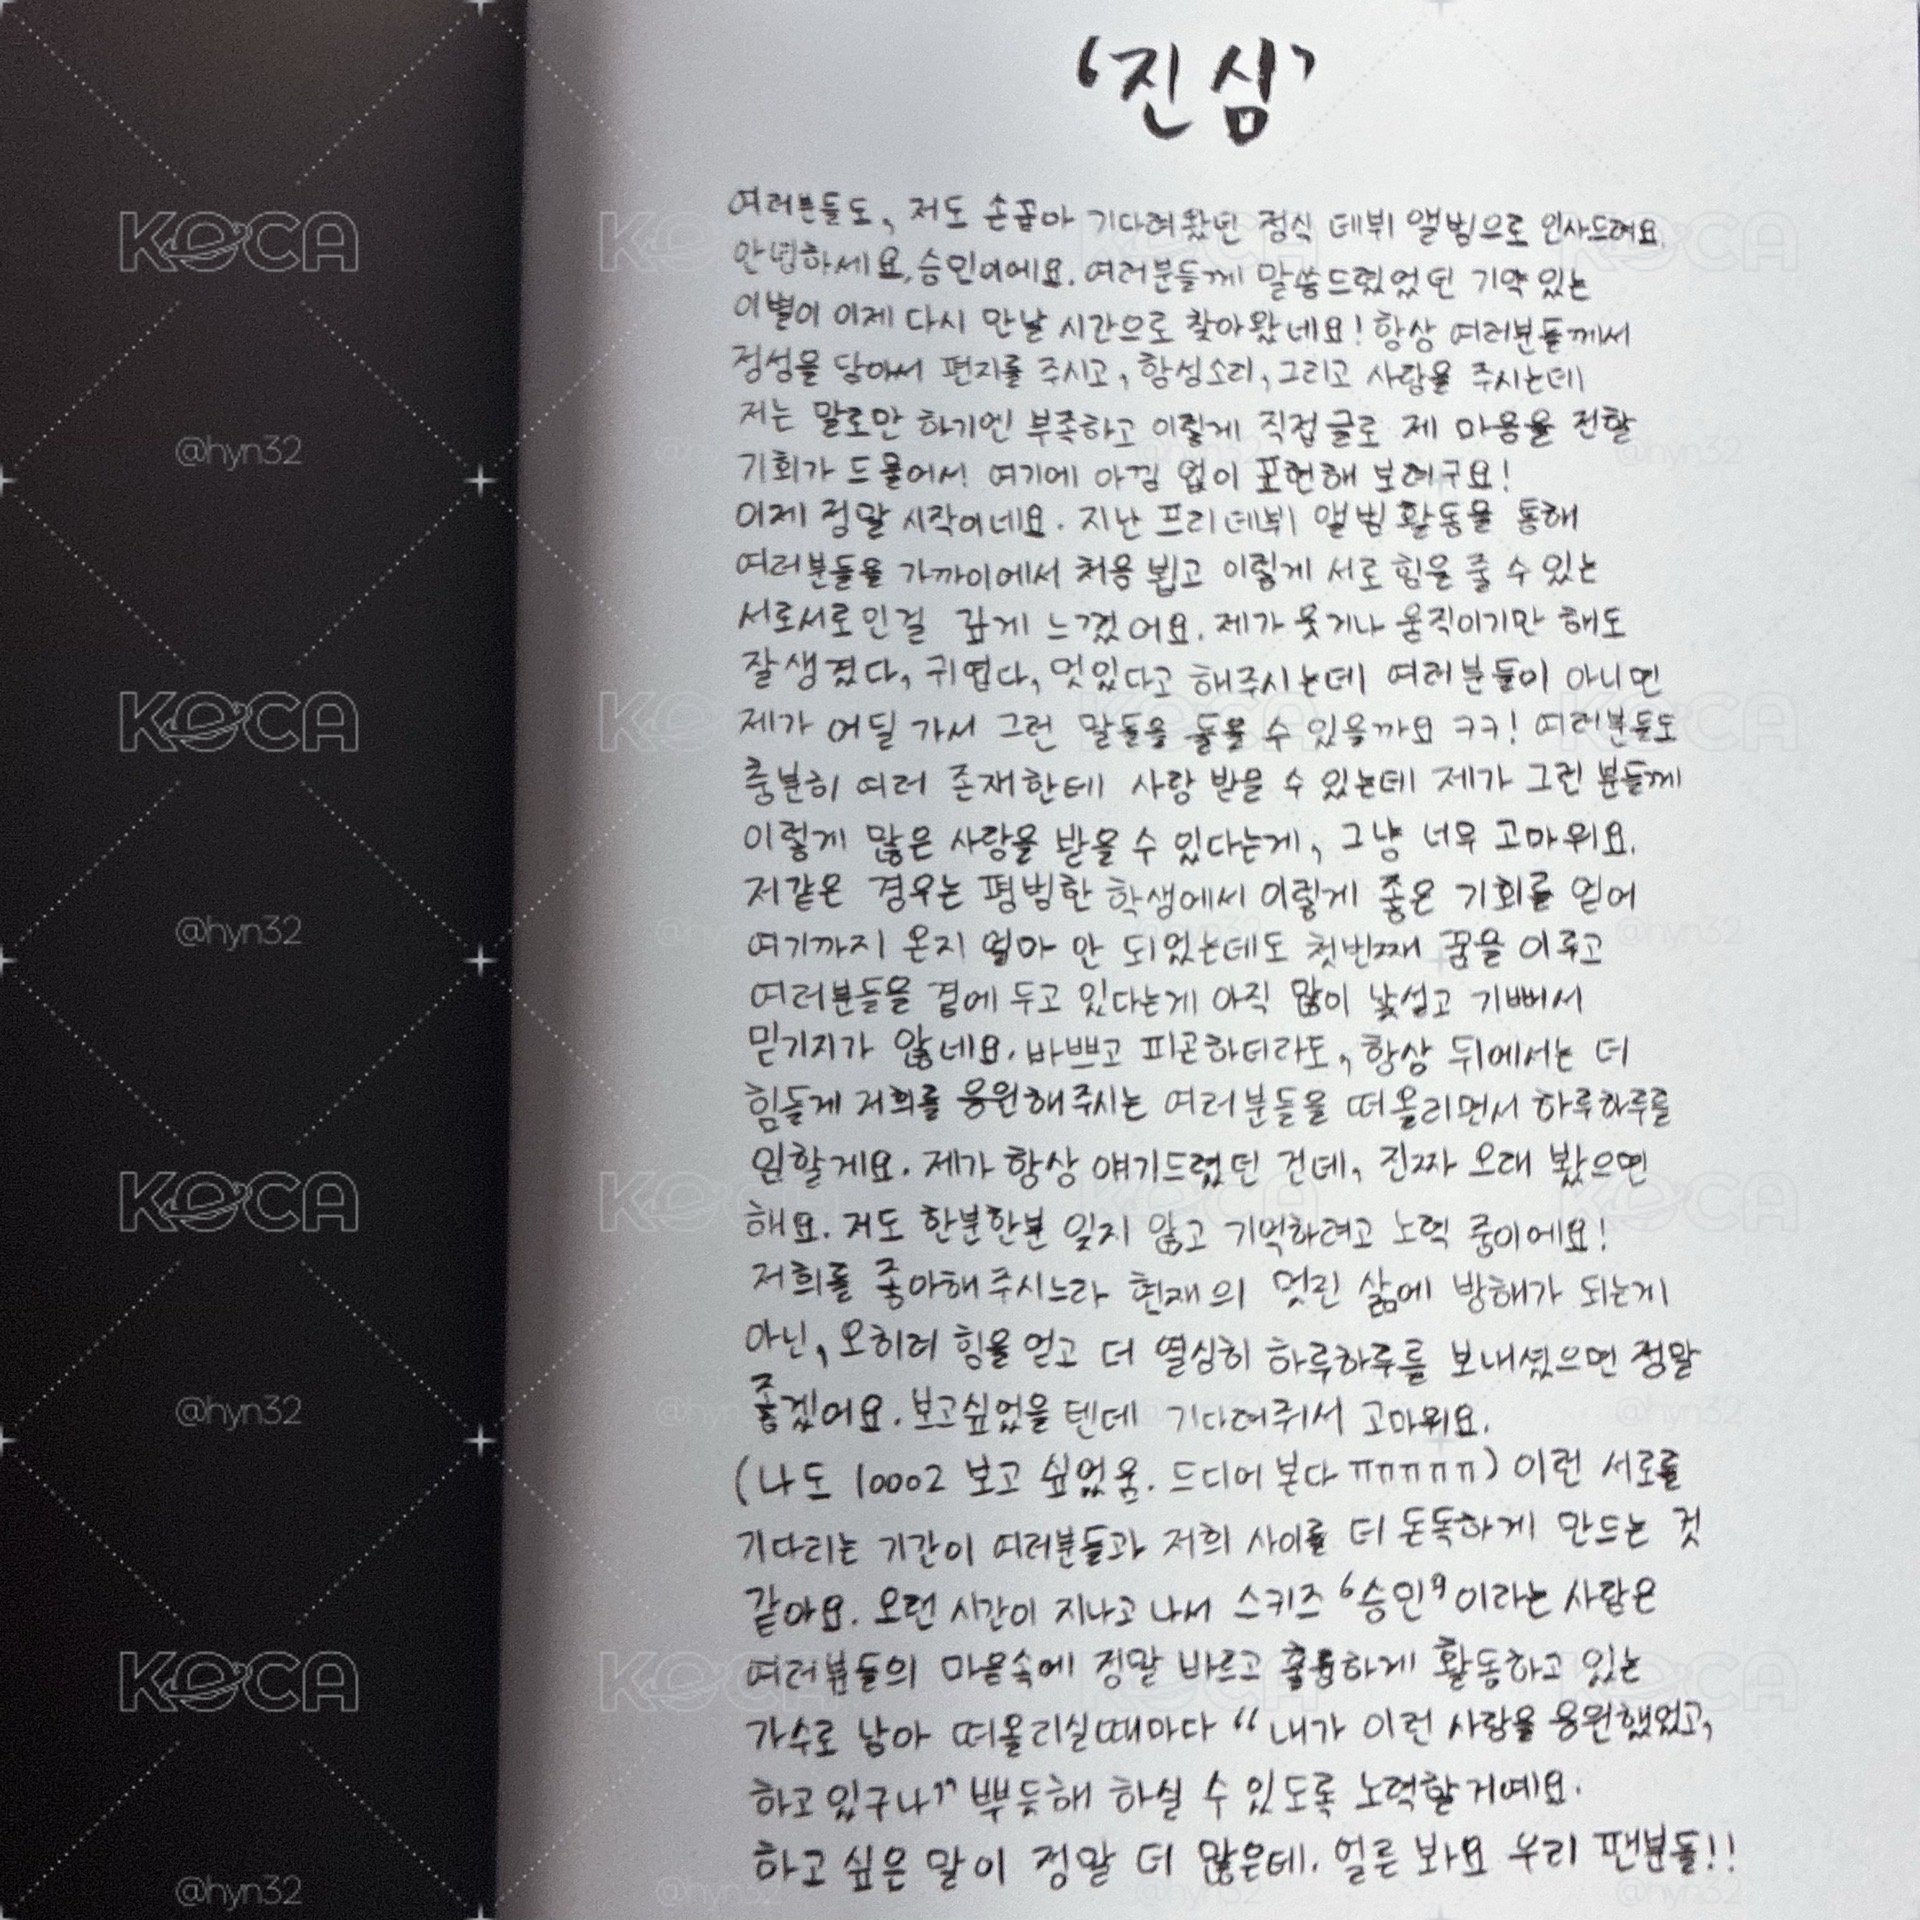 '진심'
여러분들도, 저도 손꼽아 기다려왔던 정식 데뷔 앨범으로 인사드려요.
안녕하세요, 승민이에요. 여러분들께 말씀드렸었던 기약 있는
이별이 이제 다시 만날 시간으로 찾아왔네요! 항상 여러분들께서
정성을 담아서 편지를 주시고, 함성소리, 그리고 사랑을 주시는데
저는 말로만 하기엔 부족하고 이렇게 직접 글로 제 마음을 전할
기회가 드물어서! 여기에 아낌 없이 표현해 보려구요!
이제 정말 시작이네요. 지난 프리데뷔 앨범 활동을 통해
여러분들을 가까이에서 처음 뵙고 이렇게 서로 힘을 줄 수 있는
서로서로인걸 깊게 느꼈어요. 제가 웃거나 움직이기만 해도
잘생겼다, 귀엽다, 멋있다고 해주시는데 여러분들이 아니면
제가 어딜 가서 그런 말들을 들을 수 있을까요 ㅋㅋ! 여러분들도
충분히 여러 존재한테 사랑 받을 수 있는데 제가 그런 분들께
이렇게 많은 사랑을 받을 수 있다는게, 그냥 너무 고마워요.
저같은 경우는 평범한 학생에서 이렇게 좋은 기회를 얻어
여기까지 온지 얼마 안 되었는데도 첫번째 꿈을 이루고
여러분들을 곁에 두고 있다는게 아직 많이 낯설고 기뻐서
믿기지가 않네요. 바쁘고 피곤하더라도, 항상 뒤에서는 더
힘들게 저희를 응원해주시는 여러분들을 떠올리면서 하루하루를
임할게요. 제가 항상 얘기드렸던 건데, 진짜 오래 봤으면
해요. 저도 한분한분 잊지 않고 기억하려고 노력 중이에요!
저희를 좋아해주시느라 현재의 멋진 삶에 방해가 되는게
아닌, 오히려 힘을 얻고 더 열심히 하루하루를 보내셨으면 정말
좋겠어요. 보고싶었을텐데 기다려줘서 고마워요.
(나도 10002 보고 싶었움. 드디어 본다 ㅠㅠㅠㅠㅠ) 이런 서로를
기다리는 기간이 여러분들과 저희 사이를 더 돈독하게 만드는 것
같아요. 오랜 시간이 지나고 나서 스키즈 '승민'이라는 사람은
여러분들의 마음속에 정말 바르고 훌륭하게 활동하고 있는
가수로 남아 떠올리실때마다 "내가 이런 사람을 응원했었고,
하고있구나" 뿌듯해 하실 수 있도록 노력할거예요.
하고 싶은 말이 정말 더 많은데. 얼른 봐요 우리 팬분들!!
KOCA
@hyn32